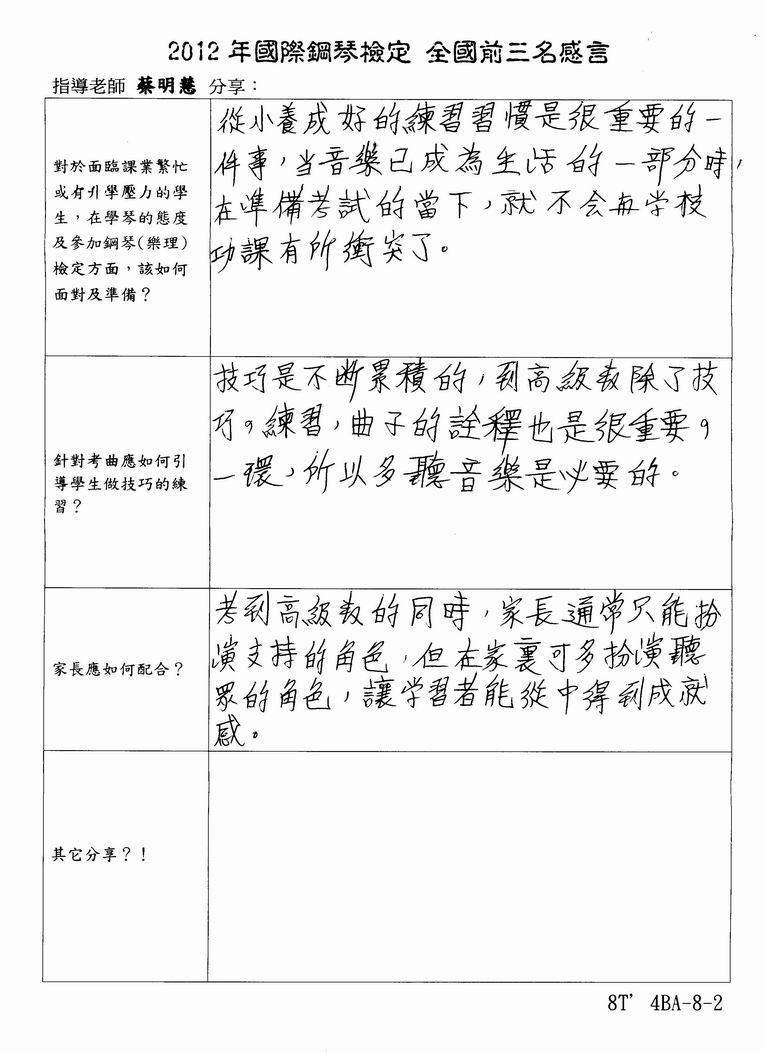 2012 年國際鋼琴檢定 全國前三名感言
指導老師 蔡明慧 分享：
對於面臨課業繁忙
或有升學壓力的學
生，在學琴的態度
及參加鋼琴(樂理)
檢定方面，該如何
面對及準備？
從小養成好的練習習慣是很重要的一
件事，当音樂已成為生活的一部分時，
在準備考試的當下，就不会與学校
功課有所衝突了。
針對考曲應如何引
導學生做技巧的練
習？
技巧是不断累積的，到高級数除了技
巧的練習，曲子的詮釋也是很重要的
一環，所以多聽音樂是必要的。
家長應如何配合？
考到高級数的同時，家長通常只能扮
演支持的角色，但在家裏可多扮演聽
眾的角色，讓学習者能從中得到成就
感。
其它分享？！
8T' 4BA-8-2